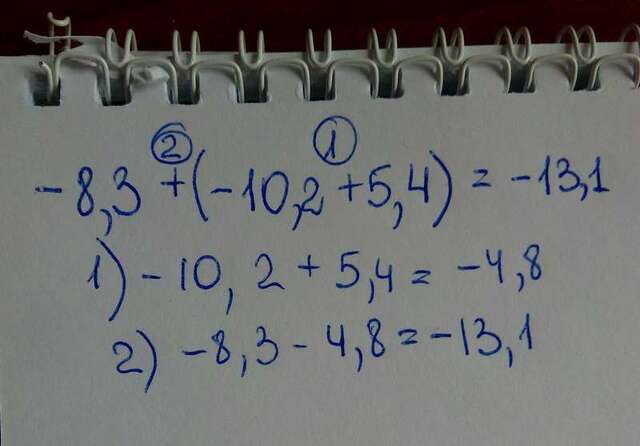 ② ①
-8,3 + (-10,2 + 5,4) = -13,1
1) -10,2 + 5,4 = -4,8
2) -8,3 - 4,8 = -13,1